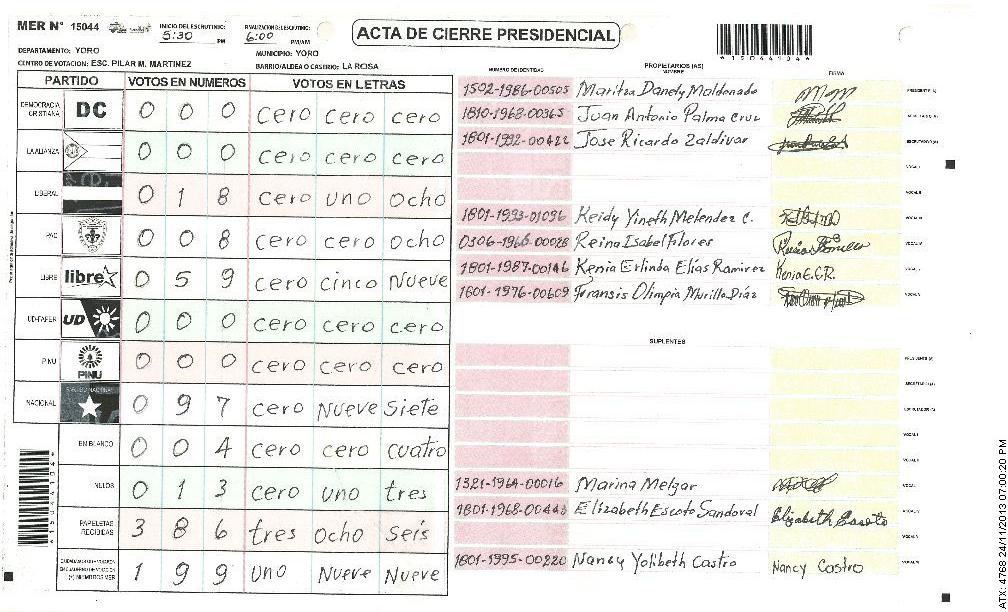 MER Nº 15044 INICIO DEL ESCRUTINIO: 5:30 PM FINALIZACION DEL ESCRUTINIO: 6:00 PM/AM
ACTA DE CIERRE PRESIDENCIAL
DEPARTAMENTO: YORO MUNICIPIO: YORO
CENTRO DE VOTACION: ESC. PILAR M. MARTINEZ BARRIO/ALDEA O CASERIO: LA ROSA
*15044104*
PARTIDO VOTOS EN NUMEROS VOTOS EN LETRAS
DEMOCRACIA CRISTIANA DC 0 0 0 cero cero cero
LA ALIANZA 0 0 0 cero cero cero
LIBERAL 0 1 8 cero uno ocho
PAC 0 0 8 cero cero ocho
LIBRE libre 0 5 9 cero cinco Nueve
UD-FAPER UD 0 0 0 cero cero cero
PINU PINU 0 0 0 cero cero cero
NACIONAL 0 9 7 cero Nueve Siete
EN BLANCO 0 0 4 cero cero cuatro
NULOS 0 1 3 cero uno tres
PAPELETAS RECIBIDAS 3 8 6 tres ocho seis
1 9 9 uno Nueve Nueve
NUMERO DE IDENTIDAD PROPIETARIOS (AS) NOMBRE FIRMA
1502-1986-00505 Maritza Danely Maldonado PRESIDENTE (A)
1810-1968-00365 Juan Antonio Palma Cruz SECRETARIO (A)
1801-1992-00422 Jose Ricardo Zaldivar ESCRUTADOR (A)
VOCAL I
VOCAL II
1801-1993-01096 Keidy Yineth Melendez C. VOCAL III
0306-1966-00028 Reina Isabel Flores VOCAL IV
1801-1987-00146 Kenia Erlinda Elías Ramirez Kenia E.E.R. VOCAL V
1801-1976-00609 Fransis Olimpia Murillo Díaz VOCAL VI
SUPLENTES
PRESIDENTE (A)
SECRETARIO (A)
ESCRUTADOR (A)
VOCAL I
VOCAL II
1321-1964-00016 Marina Melgar
1801-1968-00443 Elizabeth Escoto Sandoval Elizabeth Escoto
1801-1995-00220 Nancy Yolibeth Castro Nancy Castro
*15044104*
ATX: 4768 24/11/2013 07:00:20 PM